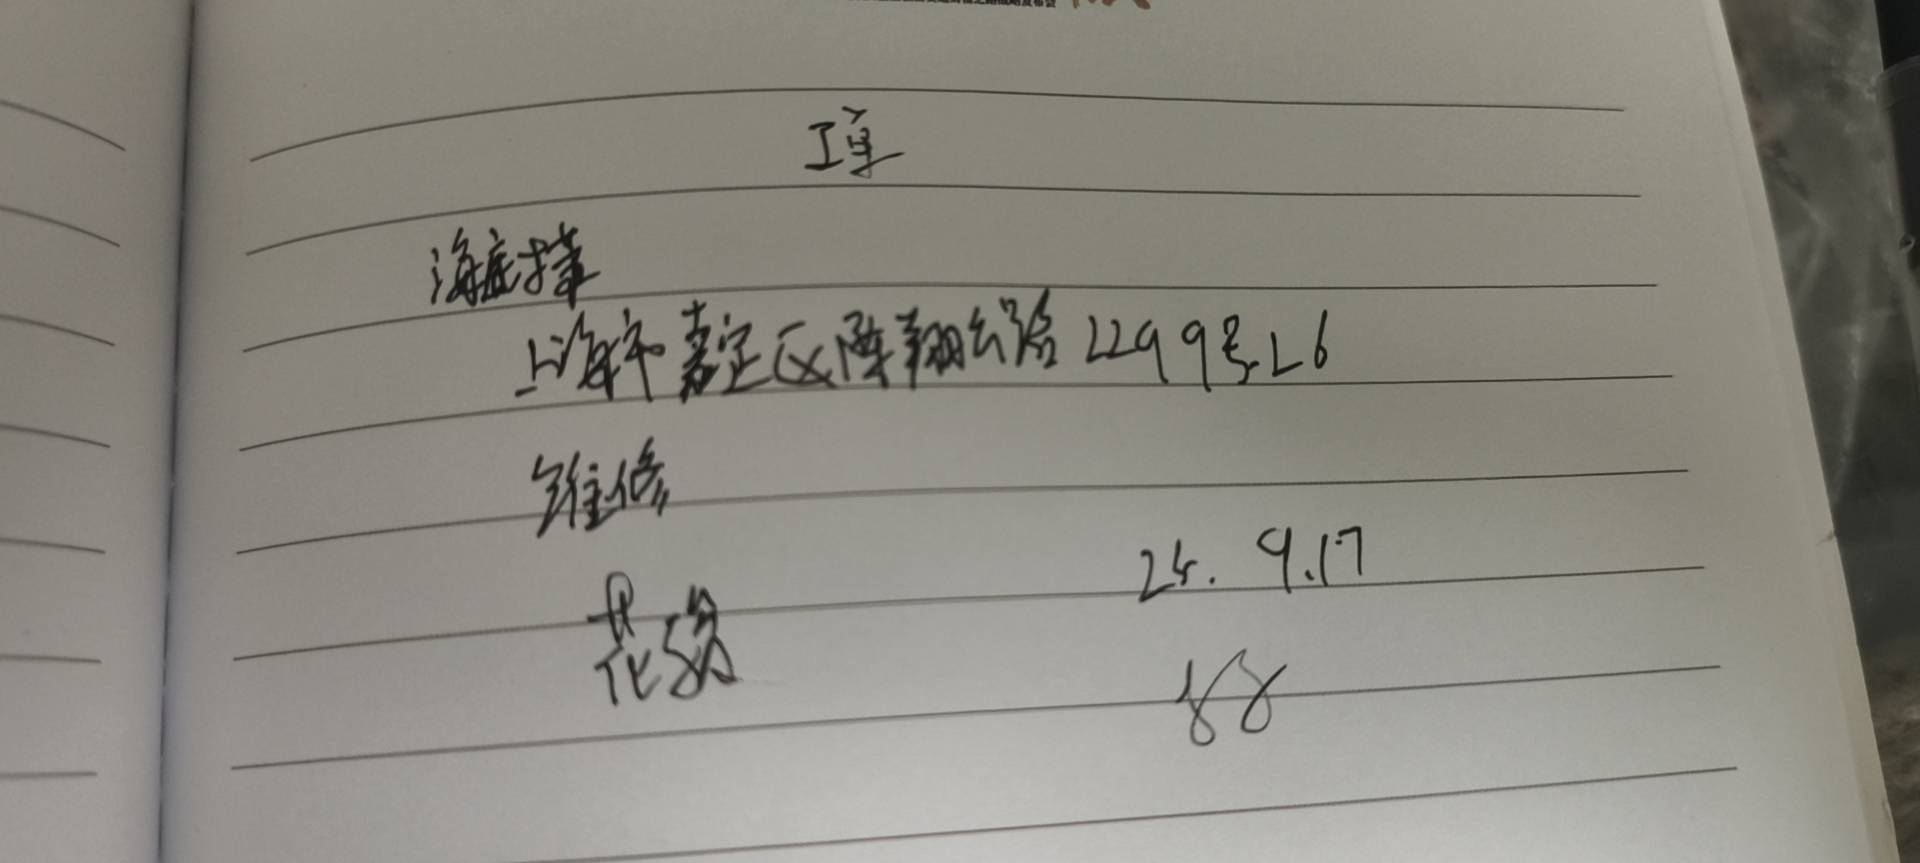 工单
海底捞
上海市嘉定区陈翔公路2299号L6
维修
花纷
24.9.17
88